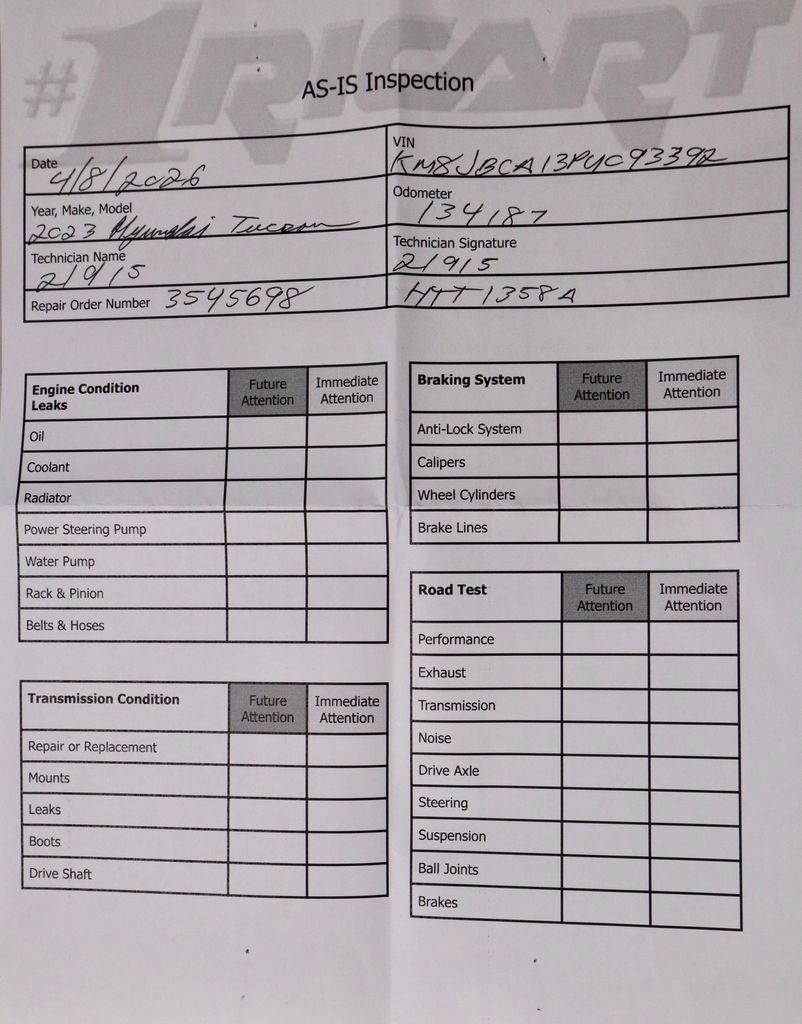 #1 RICART
AS-IS Inspection
Date 4/8/2026
VIN KM8JBCA13PU093392
Year, Make, Model 2023 Hyundai Tucson
Odometer 134187
Technician Name 21915
Technician Signature 21915
Repair Order Number 3545698
HTT1358A
Engine Condition Leaks Future Attention Immediate Attention
Oil
Coolant
Radiator
Power Steering Pump
Water Pump
Rack & Pinion
Belts & Hoses
Transmission Condition Future Attention Immediate Attention
Repair or Replacement
Mounts
Leaks
Boots
Drive Shaft
Braking System Future Attention Immediate Attention
Anti-Lock System
Calipers
Wheel Cylinders
Brake Lines
Road Test Future Attention Immediate Attention
Performance
Exhaust
Transmission
Noise
Drive Axle
Steering
Suspension
Ball Joints
Brakes